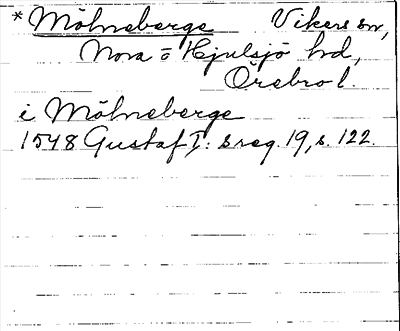 * Mölneberge Vikers sn,
Nora o Hjulsjö hd,
Örebro l.
i Mölneberge
1548 Gustaf I: s reg. 19, s. 122.